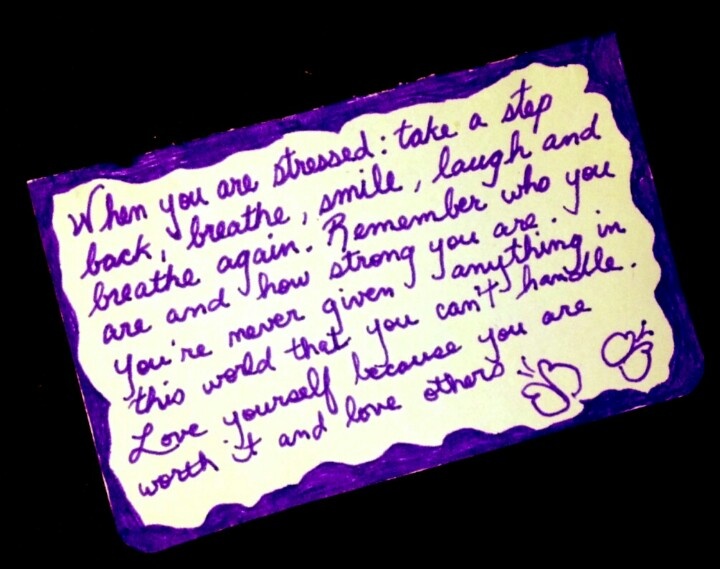 When you are stressed: take a step
back, breathe, smile, laugh and
breathe again. Remember who you
are and how strong you are.
You're never given anything in
this world that you can't handle.
Love yourself because you are
worth it and love others